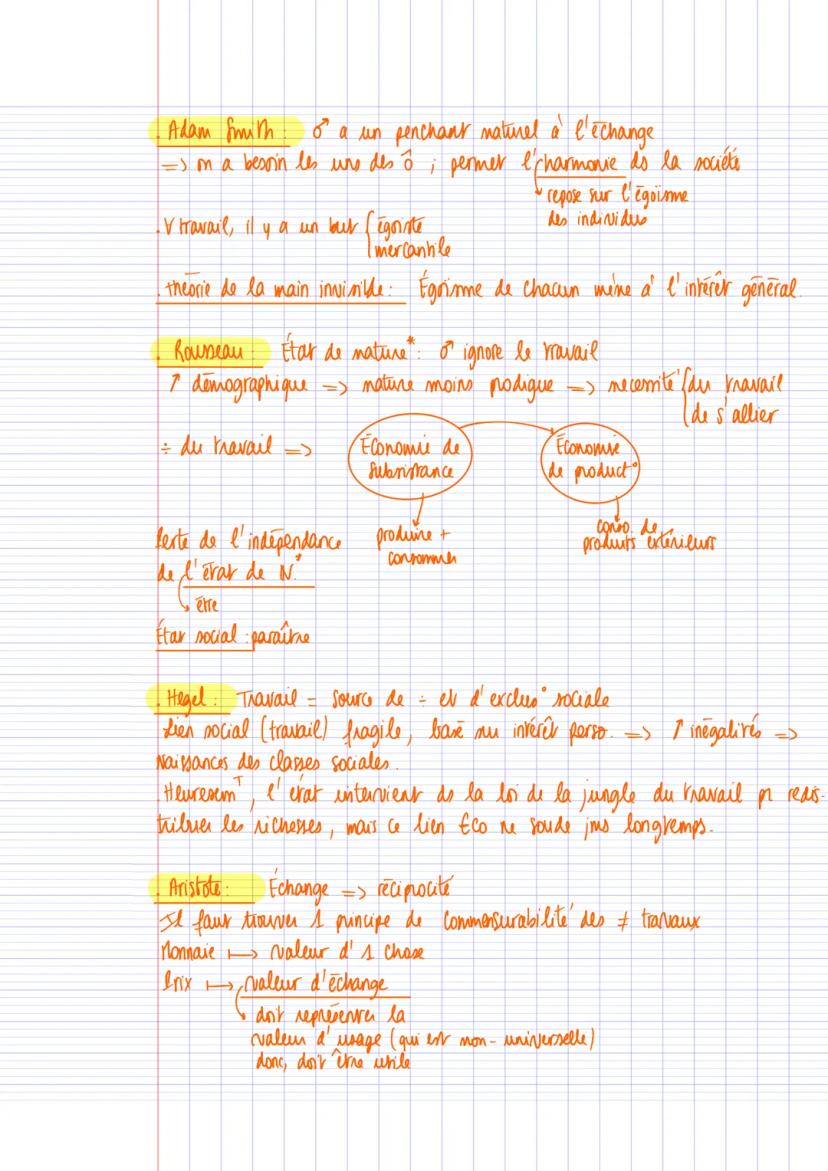 . Adam Smith : ♂ a un penchant naturel à l'échange
=> on a besoin les uns des ô ; permet l'harmonie ds la société
repose sur l'égoïsme
des individus
. ∀ travail, il y a un but { égoïste
mercantile
. théorie de la main invisible : Égoïsme de chacun mène à l'intérêt général.
. Rousseau : État de nature* : ♂ ignore le travail
↗ démographique => nature moins prodigue => necessité { du travail
de s'allier
÷ du travail =>
Économie de
subsistance
Économie
de product°
produire +
consommer
conso. de
produits extérieurs
Perte de l'indépendance
de l'état de N.*
être
État social : paraître
. Hegel : Travail = source de ÷ et d'exclus° sociale
Lien social (travail) fragile, basé su intérêt perso. => ↗ inégalités =>
Naissances des classes sociales.
. Heureusemᵀ, l'état intervient ds la loi de la jungle du travail pr redis-
tribuer les richesses, mais ce lien Éco ne soude jms longtemps.
. Aristote : Échange => réciprocité
Il faut trouver 1 principe de commensurabilité des ≠ travaux
Monnaie ↦ valeur d'1 chose
Prix ↦ valeur d'échange
doit représenter la
valeur d'usage (qui est non-universelle)
donc, doit être utile